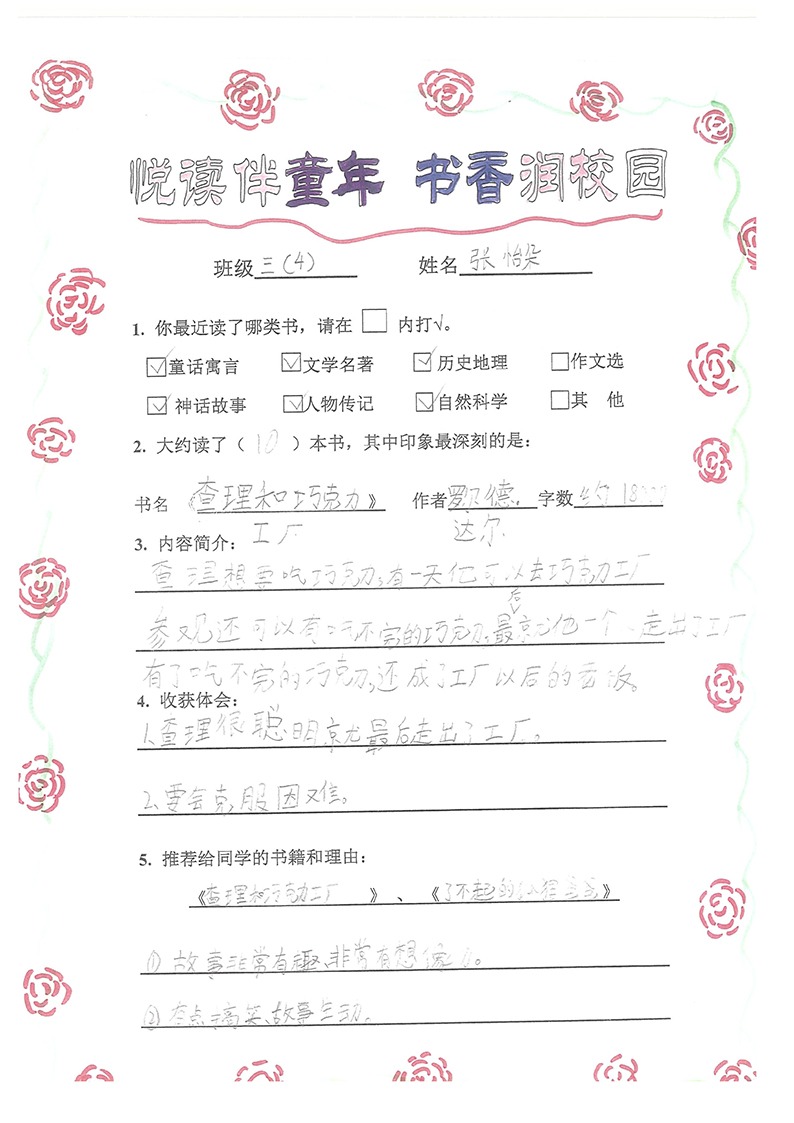 悦读伴童年 书香润校园
班级三(4) 姓名张怡朵
1. 你最近读了哪类书，请在□内打√。
☑童话寓言 ☑文学名著 ☑历史地理 □作文选
☑神话故事 ☑人物传记 ☑自然科学 □其 他
2. 大约读了（10）本书，其中印象最深刻的是：
书名《查理和巧克力》 作者罗德. 字数约18
工厂 达尔
3. 内容简介：
查理想要吃巧克力,有一天他可以去巧克力工厂
参观还可以有吃不完的巧克力,最后就他一个 走出了工厂
有了吃不完的巧克力,还成了工厂以后的老板。
4. 收获体会：
1.查理很聪明就最后走出了工厂。
2.要会克服困难。
5. 推荐给同学的书籍和理由：
《查理和巧克力工厂》、《了不起的狐狸爸爸》
①故事非常有趣、非常有想像力。
②有点搞笑、故事生动。